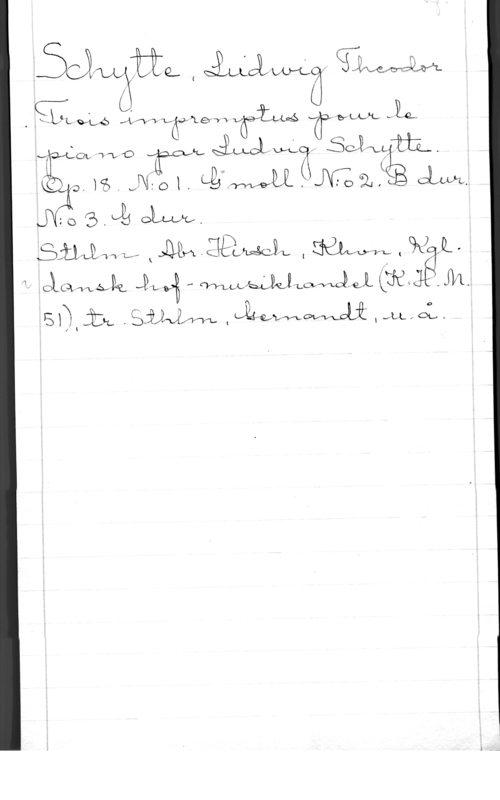 Schytte, Ludwig Theodor
Trois impromptus pour le
piano par Ludwig Schytte.
Op. 18. N:o 1. G moll. N:o 2. B dur.
N:o 3. G dur.
Sthlm, Abr. Hirsch, Khvn, Kgl.
dansk hof-musikhandel (K. H. M.
51), tr. Sthlm, Gernandt, u. å.